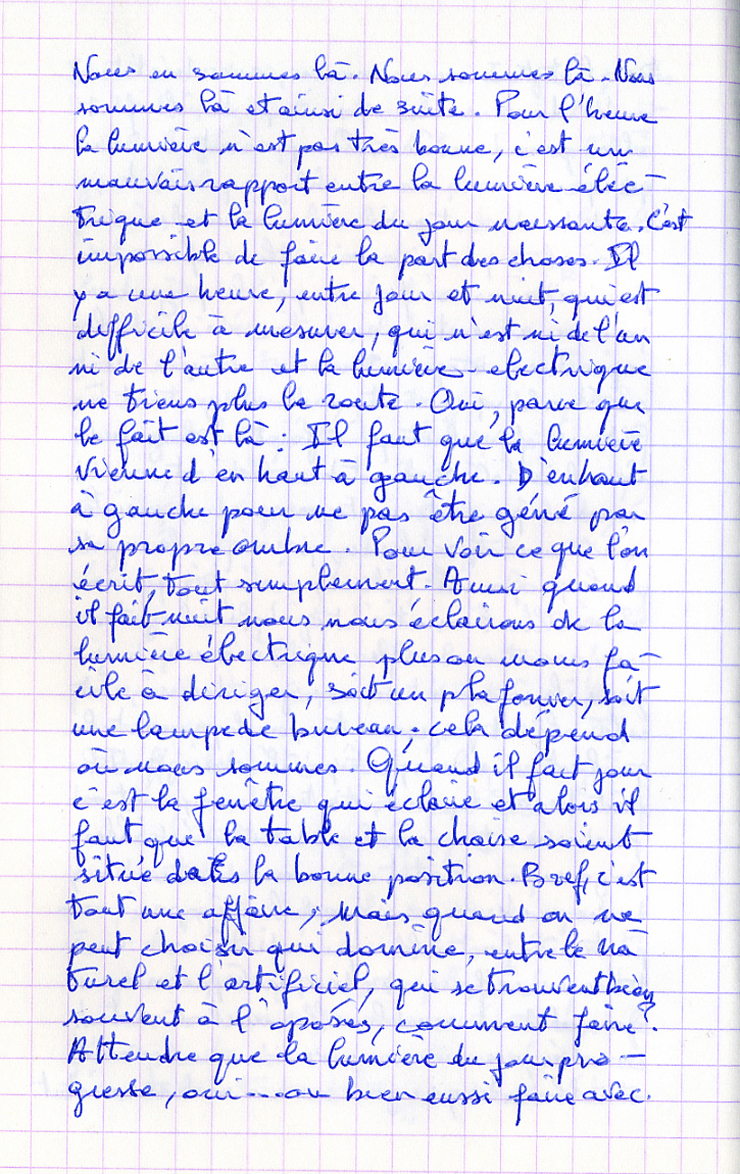 Nous en sommes là. Nous sommes là. Nous
sommes là et ainsi de suite. Pour l'heure
la lumière n'est pas très bonne, c'est un
mauvais rapport entre la lumière élec-
trique et la lumière du jour naissante. C'est
impossible de faire la part des choses. Il
y a une heure, entre jour et nuit, qui est
difficile à mesurer, qui n'est ni de l'un
ni de l'autre et la lumière electrique
ne tiens plus la route. Oui, parce que
le fait est là : Il faut que la lumière
vienne d'en haut à gauche. D'en haut
à gauche pour ne pas être géné par
sa propre ombre. Pour voir ce que l'on
écrit, tout simplement. Aussi quand
il fait nuit nous nous éclairons de la
lumière électrique plus ou moins fa-
cile à diriger, soit un plafonier, soit
une lampe de bureau ; cela dépend
où nous sommes. Quand il fait jour
c'est la fenêtre qui éclaire et alors il
faut que la table et la chaise soient
situé dans la bonne position. Bref, c'est
tout une affaire, mais quand on ne
peut choisir qui domine, entre le na
turel et l'artificiel, qui se trouvent bien
souvent à l'oposés, comment faire?
Attendre que la lumière du jour pro-
gresse, oui... ou bien aussi faire avec.